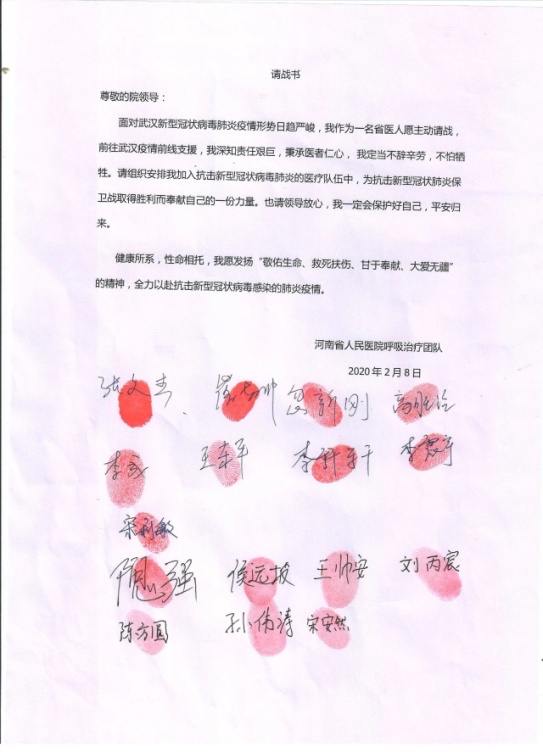 请战书
尊敬的院领导：
面对武汉新型冠状病毒肺炎疫情形势日趋严峻，我作为一名省医人愿主动请战，
前往武汉疫情前线支援，我深知责任艰巨，秉承医者仁心， 我定当不辞辛劳，不怕牺
牲。请组织安排我加入抗击新型冠状病毒肺炎的医疗队伍中，为抗击新型冠状肺炎保
卫战取得胜利而奉献自己的一份力量。也请领导放心，我一定会保护好自己，平安归
来。
健康所系，性命相托，我愿发扬“敬佑生命、救死扶伤、甘于奉献、大爱无疆”
的精神，全力以赴抗击新型冠状病毒感染的肺炎疫情。
河南省人民医院呼吸治疗团队
2020 年 2 月 8 日
张文杰
宋利敏
王帅安 刘丙宸
陈方圆 孙伟涛 宋安然